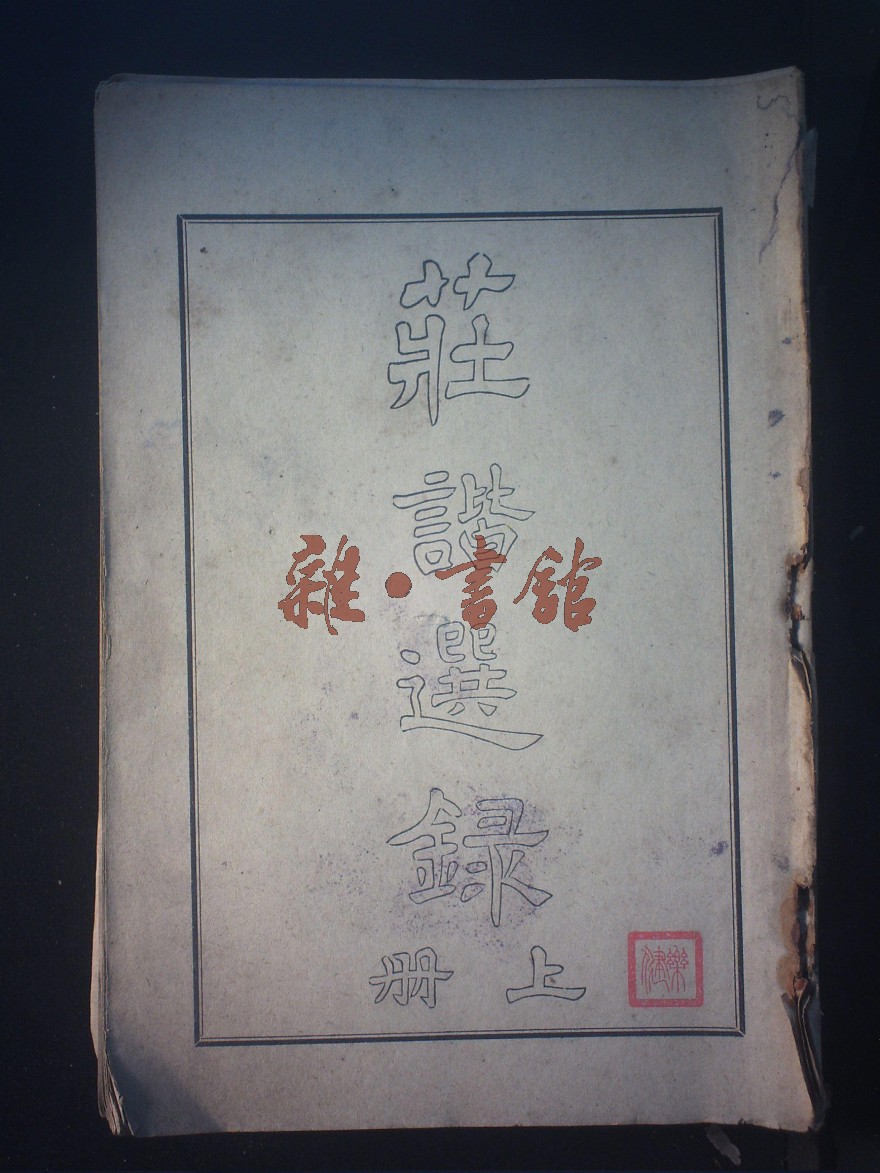 莊諧選錄
上册
雜·書館